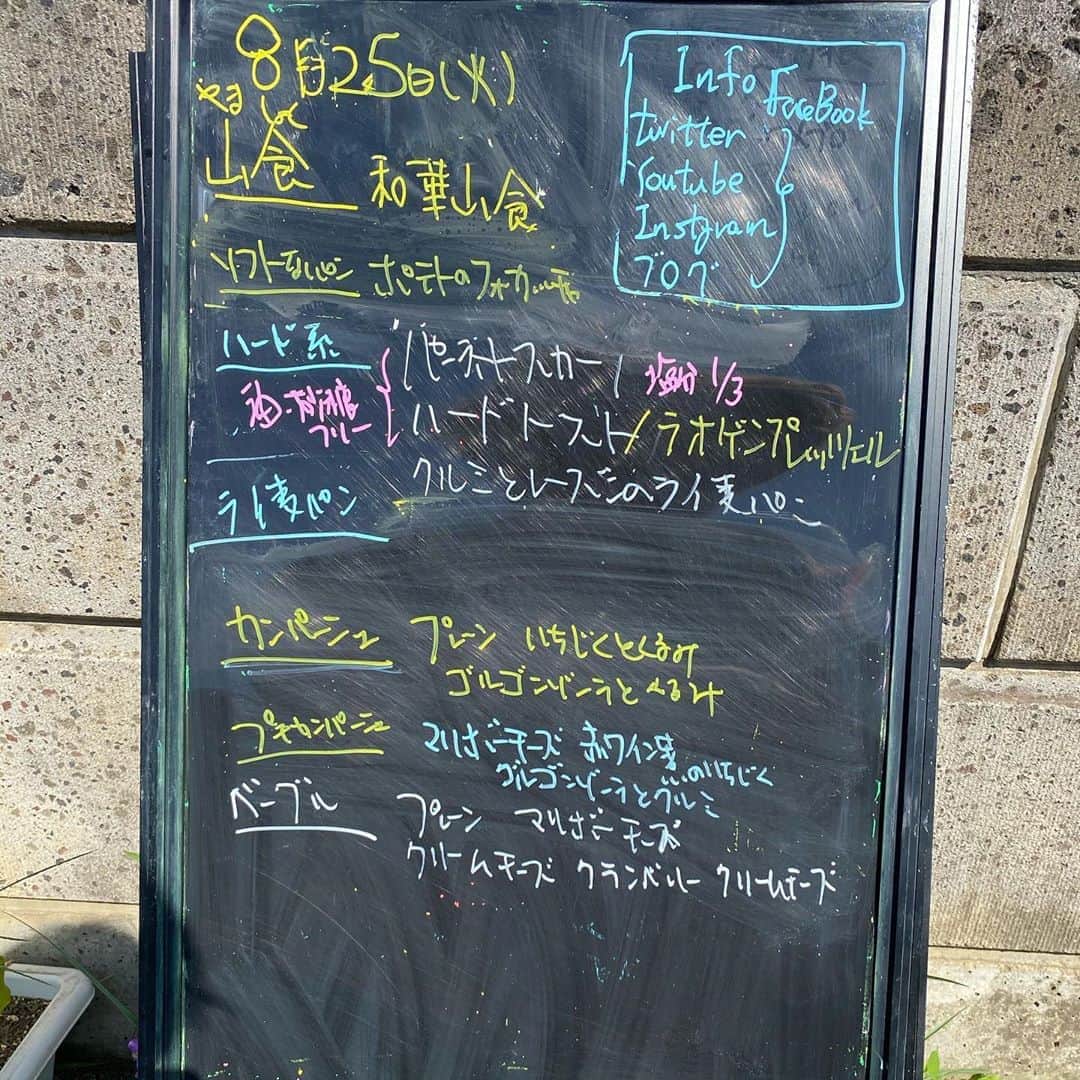 8月25日(火)
やましょく
山食 和華山食
Info FaceBook
twitter
Youtube
Instgram
ブログ
ソフトなパン ポテトのフォカッチャ
ハード系 パンネトスカーナ 塩分 1/3
フリー ハードトースト/ラオゲンプレッツェル
ライ麦パン クルミとレーズンのライ麦パン
カンパーニュ プレーン いちじくとくるみ
ゴルゴンゾーラとくるみ
プチカンパーニュ マリボーチーズ 赤ワイン煮のいちじく
ゴルゴンゾーラとクルミ
ベーグル プレーン マリボーチーズ
クリームチーズ クランベリー クリームチーズ